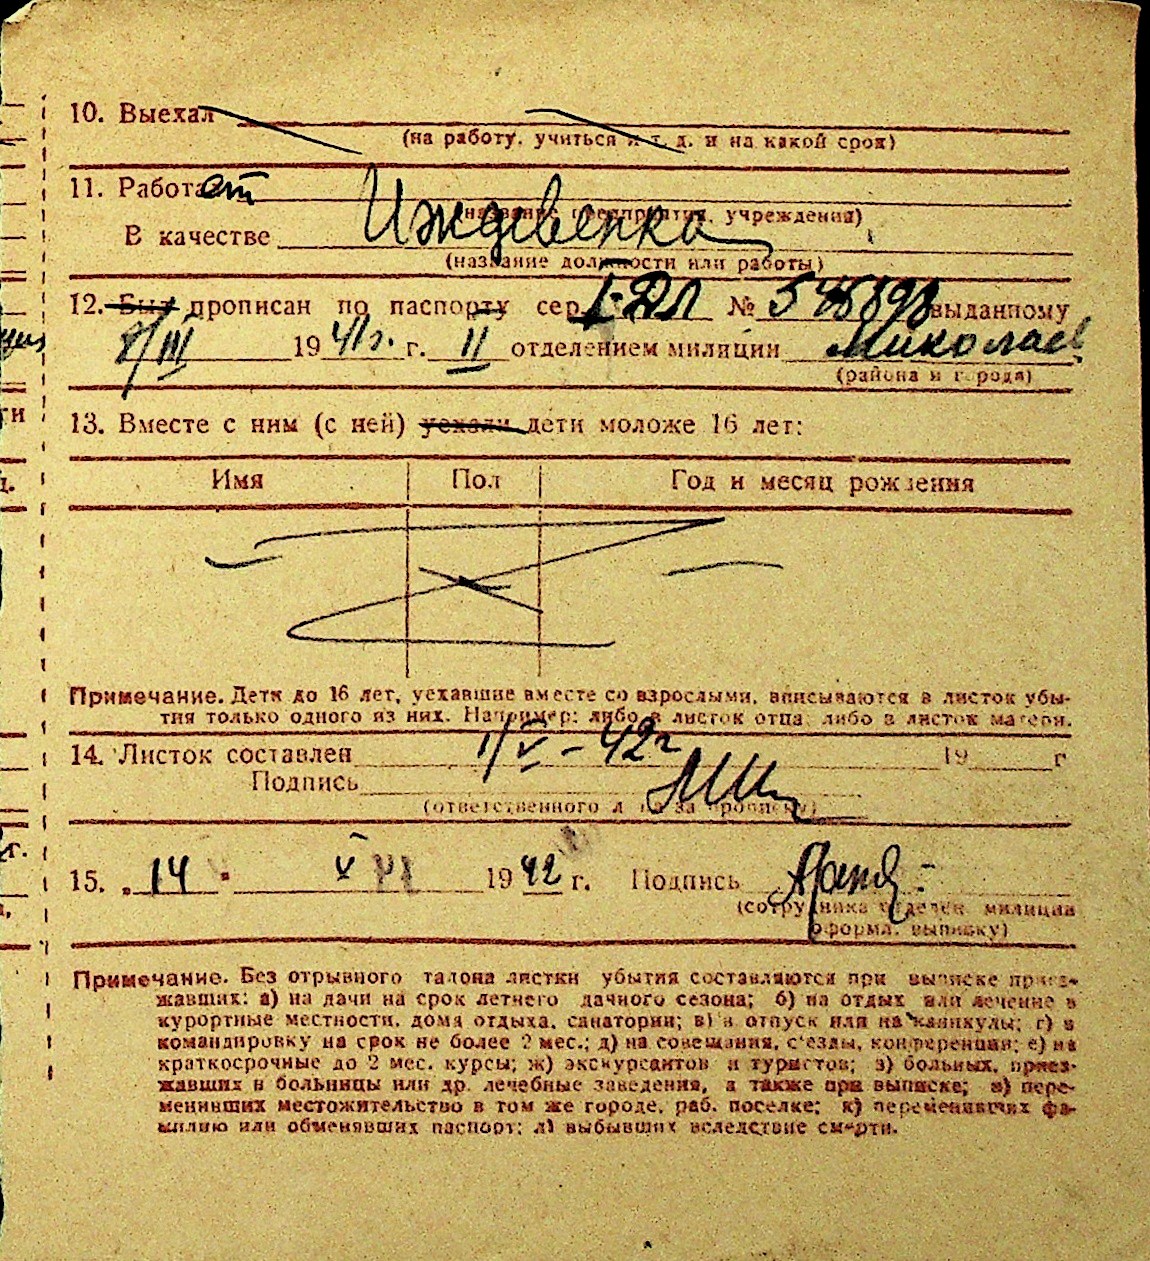 10. Выехал
(на работу, учиться и т. д. и на какой срок)
11. Работает
(название предприятия, учреждения)
В качестве Иждивенка
(название должности или работы)
12. Был прописан по паспорту сер. I-ДЛ № выданному
/III 1941 г. II отделением милиции Николаев
(района и города)
13. Вместе с ним (с ней) уехали дети моложе 16 лет:
Имя Пол Год и месяц рождения
Примечание. Дети до 16 лет, уехавшие вместе со взрослыми, вписываются в листок убы-
тия только одного из них. Например: либо в листок отца, либо в листок матери.
14. Листок составлен 1/V – 42 г 19 г
Подпись
(ответственного лица за прописку)
15. „14" V 1942 г. Подпись
(сотрудника отделен. милиции
оформл. выписку)
Примечание. Без отрывного талона листки убытия составляются при выписке приез-
жавших: а) на дачи на срок летнего дачного сезона; б) на отдых или лечение в
курортные местности, дома отдыха, санатории; в) в отпуск или на каникулы; г) в
командировку на срок не более 2 мес.; д) на совещания, с'езды, конференции; е) на
краткосрочные до 2 мес. курсы; ж) экскурсантов и туристов; з) больных, приез-
жавших в больницы или др. лечебные заведения, а также при выписке; и) пере-
менивших местожительство в том же городе, раб. поселке; к) переменивших фа-
милию или обменявших паспорт; л) выбывших вследствие смерти.